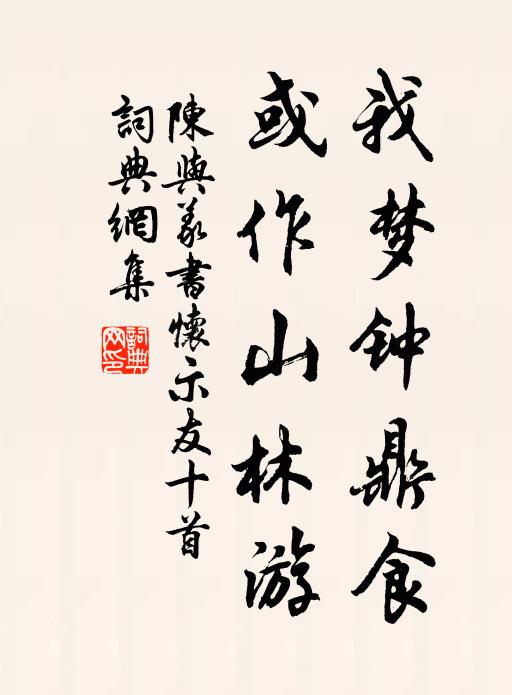 我梦钟鼎食
或作山林游
陳與義書懷示友十首
詞典網集
詞典網印